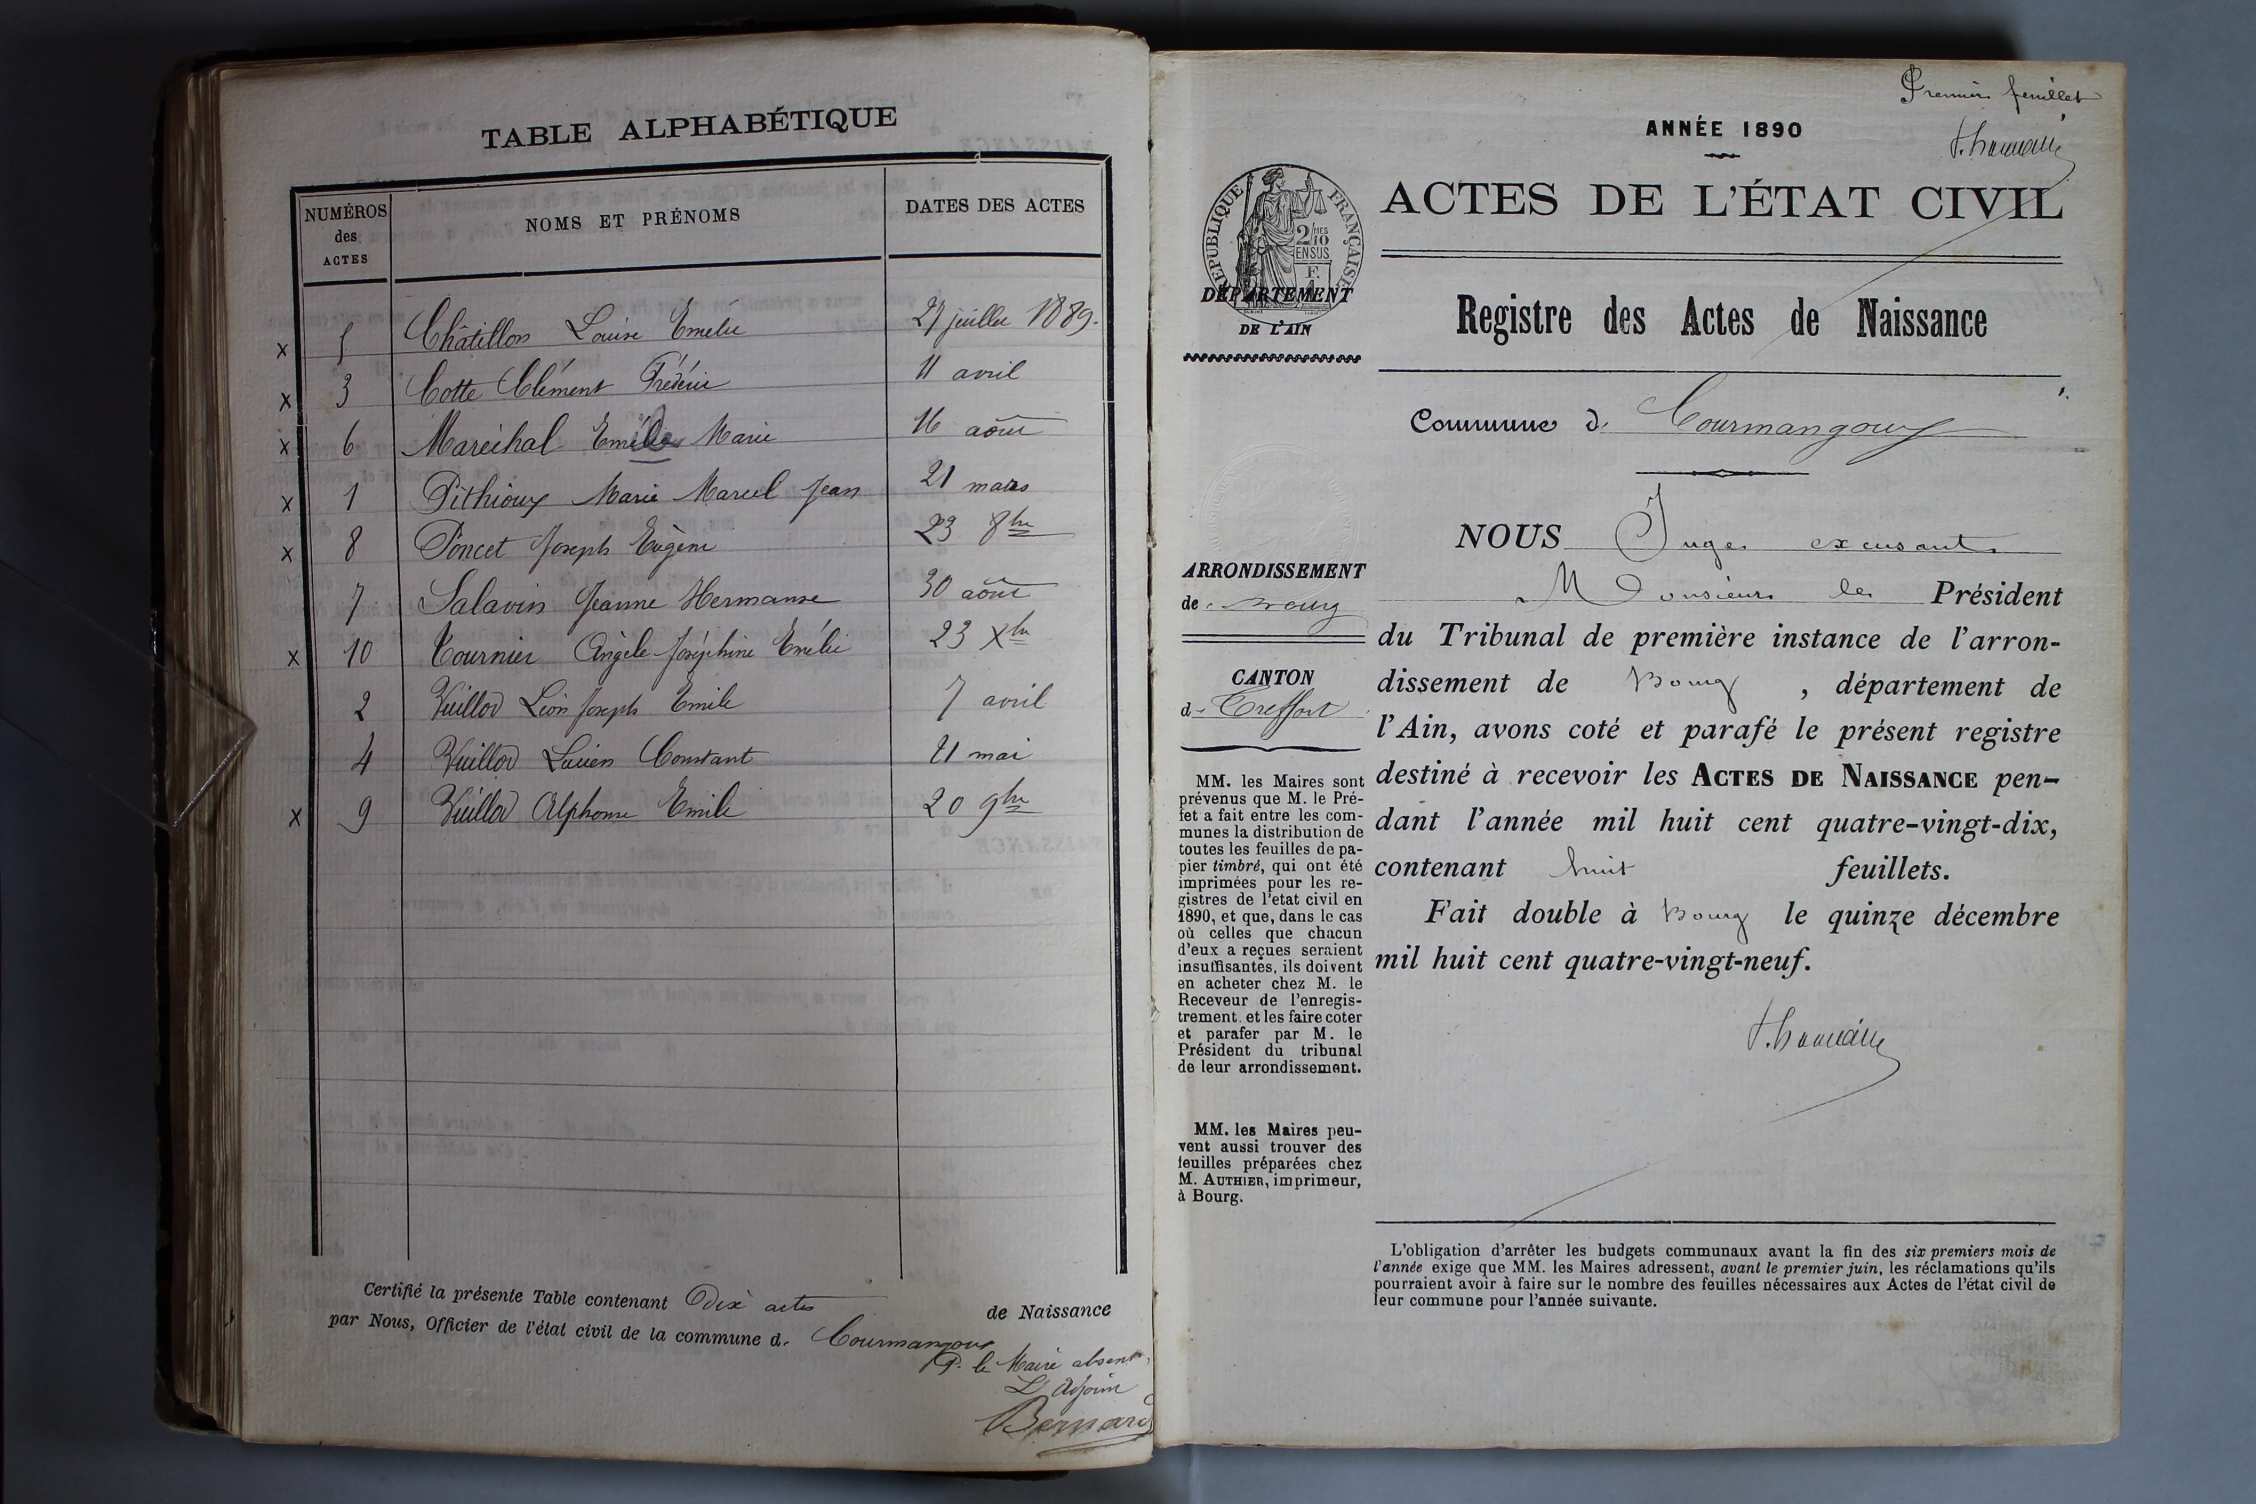 TABLE ALPHABÉTIQUE
NUMÉROS des ACTES | NOMS ET PRÉNOMS | DATES DES ACTES
x 5 Châtillon Louise Emélie 27 juillet 1889.
x 3 Cotte Clément Frédéric 11 avril
x 6 Maréchal Emélie Marie 16 août
x 1 Pithioux Marie Marcel Jean 21 mars
x 8 Poncet Joseph Eugène 23 8bre
7 Salavin Jeanne Hermanse 30 août
x 10 Tournier Angèle Joséphine Emélie 23 Xbre
2 Vuillod Léon Joseph Emile 7 avril
4 Vuillod Lucien Constant 21 mai
x 9 Vuillod Alphonse Emile 20 9bre
Certifié la présente Table contenant Dix actes de Naissance
par Nous, Officier de l'état civil de la commune d. Courmangoux
P. le Maire absent,
L'Adjoint
Bernard
Premier feuillet
ANNÉE 1890
ACTES DE L'ÉTAT CIVIL
RÉPUBLIQUE FRANÇAISE
2/10 MES
EN SUS
DÉPARTEMENT
DE L'AIN
Registre des Actes de Naissance
Commune d. Courmangoux
NOUS Juge excusant
Monsieur le Président
du Tribunal de première instance de l'arron-
dissement de Bourg, département de
l'Ain, avons coté et parafé le présent registre
destiné à recevoir les ACTES DE NAISSANCE pen-
dant l'année mil huit cent quatre-vingt-dix,
contenant huit feuillets.
Fait double à Bourg le quinze décembre
mil huit cent quatre-vingt-neuf.
ARRONDISSEMENT
de Bourg
CANTON
d. Treffort
MM. les Maires sont
prévenus que M. le Pré-
fet a fait entre les com-
munes la distribution de
toutes les feuilles de pa-
pier timbré, qui ont été
imprimées pour les re-
gistres de l'etat civil en
1890, et que, dans le cas
où celles que chacun
d'eux a reçues seraient
insuffisantes, ils doivent
en acheter chez M. le
Receveur de l'enregis-
trement. et les faire coter
et parafer par M. le
Président du tribunal
de leur arrondissement.
MM. les Maires peu-
vent aussi trouver des
feuilles préparées chez
M. AUTHIER, imprimeur,
à Bourg.
L'obligation d'arrêter les budgets communaux avant la fin des six premiers mois de
l'année exige que MM. les Maires adressent, avant le premier juin, les réclamations qu'ils
pourraient avoir à faire sur le nombre des feuilles nécessaires aux Actes de l'état civil de
leur commune pour l'année suivante.